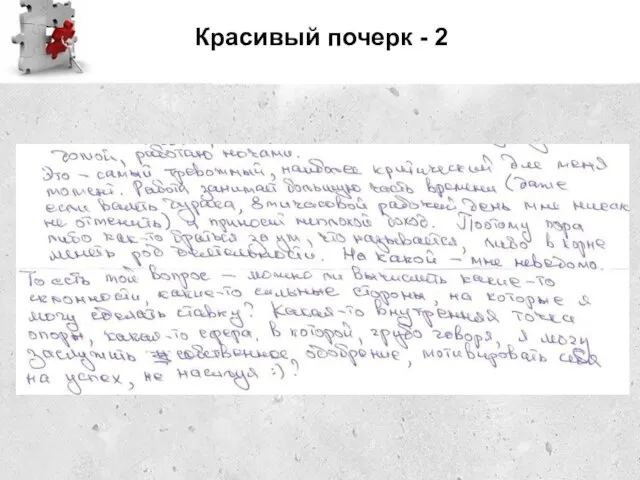 Красивый почерк - 2
головой, работаю ночами.
Это – самый тревожный, наиболее критический для меня
момент. Работа занимает большую часть времени (даже
если валять дурака, 8 тичасовой рабочий день мне никак
не отменить) и приносит неплохой доход. Поэтому пора
либо как-то браться за ум, что называется, либо в корне
менять род деятельности. На какой – мне неведомо.
То есть мой вопрос – можно ли вычислить какие-то
склонности, какие-то сильные стороны, на которые я
могу сделать ставку? Какая-то внутренняя точка
опоры, какая-то сфера, в которой, грубо говоря, я могу
заслужить собственное одобрение, мотивировать себя
на успех, не насилуя :)?